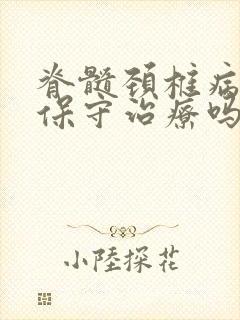 脊髓颈椎病
保守治疗吗
小陸探花